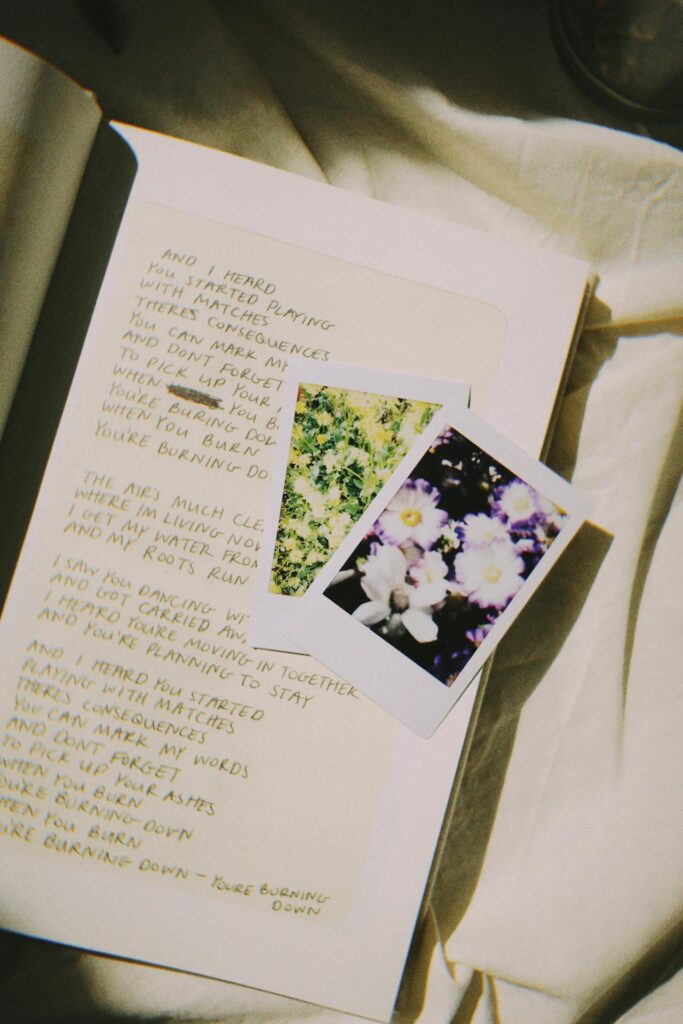 AND I HEARD
YOU STARTED PLAYING
WITH MATCHES
THERES CONSEQUENCES
YOU CAN MARK MY
AND DONT FORGET
TO PICK UP YOUR
WHEN YOU
YOU'RE BURING
WHEN YOU BURN
YOU'RE BURNING
THE AIR'S MUCH
WHERE I'M LIVING
I GET MY WATER
AND MY ROOTS RUN
I SAW YOU DANCING
AND GOT CARRIED
I HEARD YOU'RE MOVING IN TOGETHER
AND YOU'RE PLANNING TO STAY
AND I HEARD YOU STARTED
PLAYING WITH MATCHES
THERES CONSEQUENCES
YOU CAN MARK MY WORDS
AND DONT FORGET
TO PICK UP YOUR ASHES
WHEN YOU BURN
YOU'RE BURNING DOWN
WHEN YOU BURN
YOU'RE BURNING DOWN – YOURE BURNING
DOWN